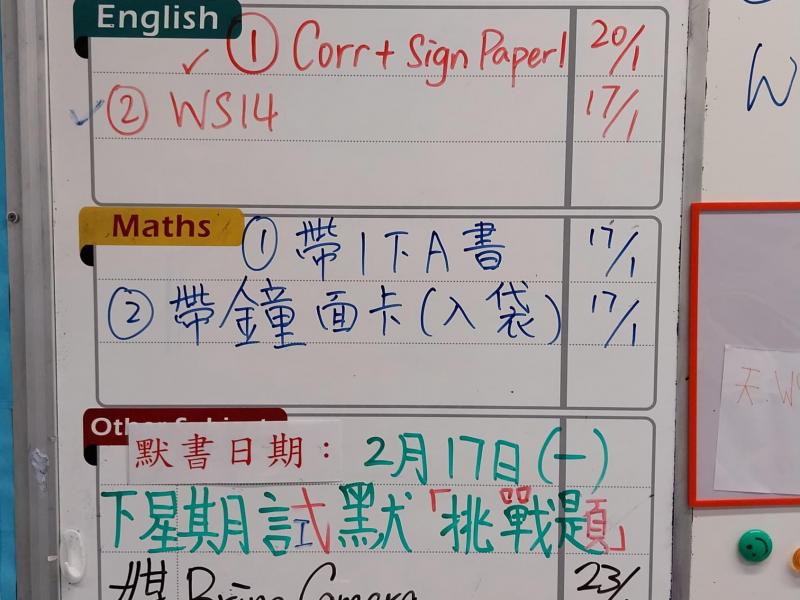 English
① Corr + Sign Paper1 20/1
② WS14 17/1
Maths
① 帶1下A書 17/1
② 帶鐘面卡(入袋) 17/1
默書日期： 2月17日(一)
下星期試默「挑戰題」
Bring Camera 23/
天.W
W